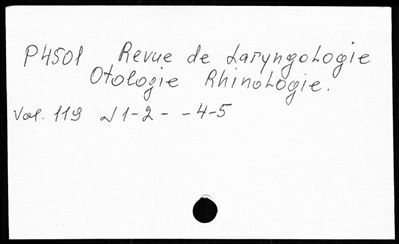 P4501 Revue de Laryngologie
Otologie Rhinologie.
Vol. 119 N 1-2- -4-5